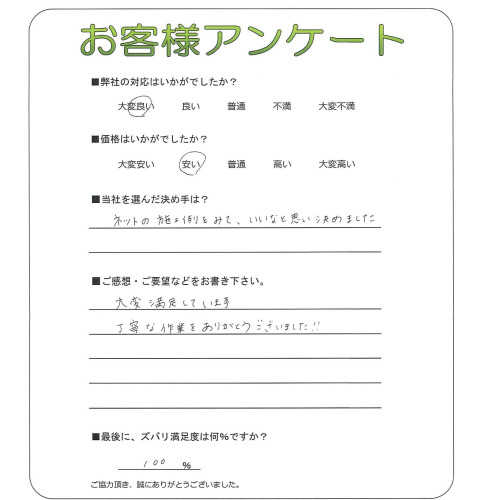 お客様アンケート
■弊社の対応はいかがでしたか？
大変良い 良い 普通 不満 大変不満
■価格はいかがでしたか？
大変安い 安い 普通 高い 大変高い
■当社を選んだ決め手は？
ネットの施工例をみて、いいなと思い決めました
■ご感想・ご要望などをお書き下さい。
大変満足しています
丁寧な作業をありがとうございました!!
■最後に、ズバリ満足度は何％ですか？
100 ％
ご協力頂き、誠にありがとうございました。